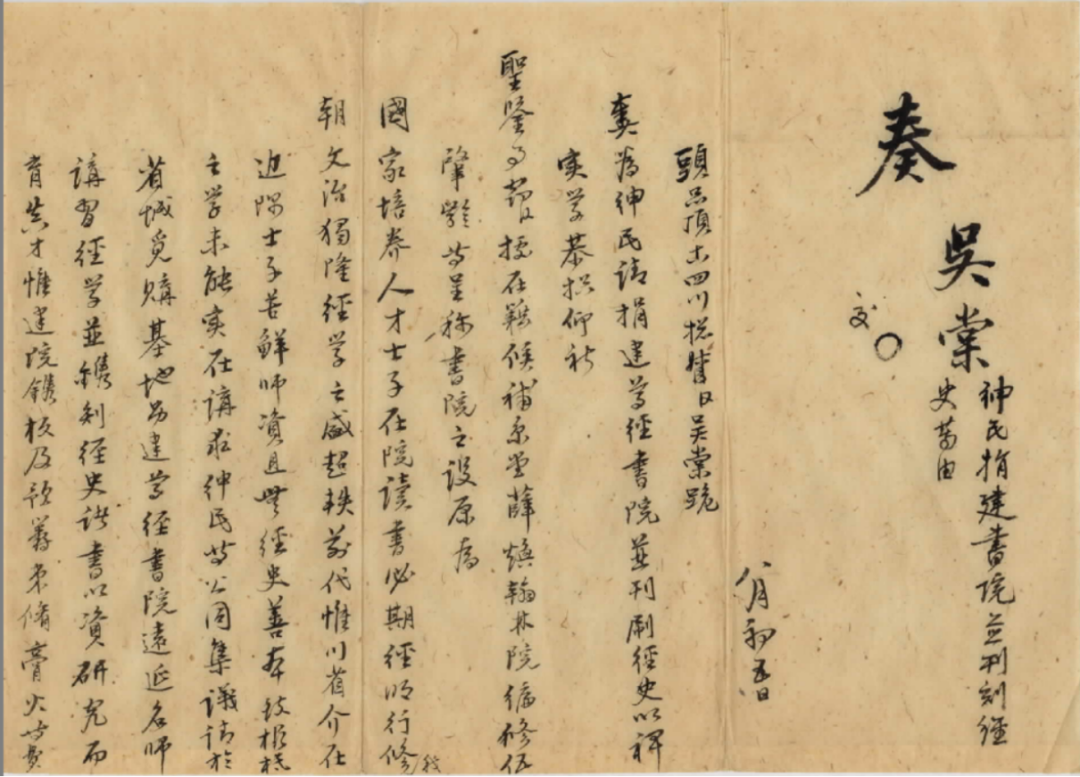 奏
吳棠
紳民捐建書院並刊刻經
史等由
八月初五日
頭品頂戴四川總督臣吳棠跪
奏為紳民請捐建尊經書院並刊刷經史以裨
實學恭摺仰祈
聖鑒事竊據在籍候補京堂薛煥翰林院編修伍
肇齡等呈稱書院之設原為
國家培養人才士子在院讀書必期經明行修
朝文治獨隆經學之盛超軼前代惟川省介在
邊隅士子苦鮮師資且無經史善本致根柢
之學未能實在講求紳民等公同集議請於
省城覓購基地另建尊經書院遠延名師
講習經學並鐫刻經史諸書以資研究而
育真才惟建院鐫板及籌束脩膏火等費